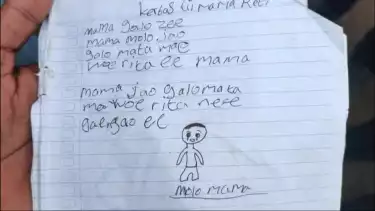 kertas ii mama Reti
mama galo zee
mama molo jao
galo mata mae
woe rita ee mama
mama jao galo mata
ma woe rita nere
gaengao ee
molo mama